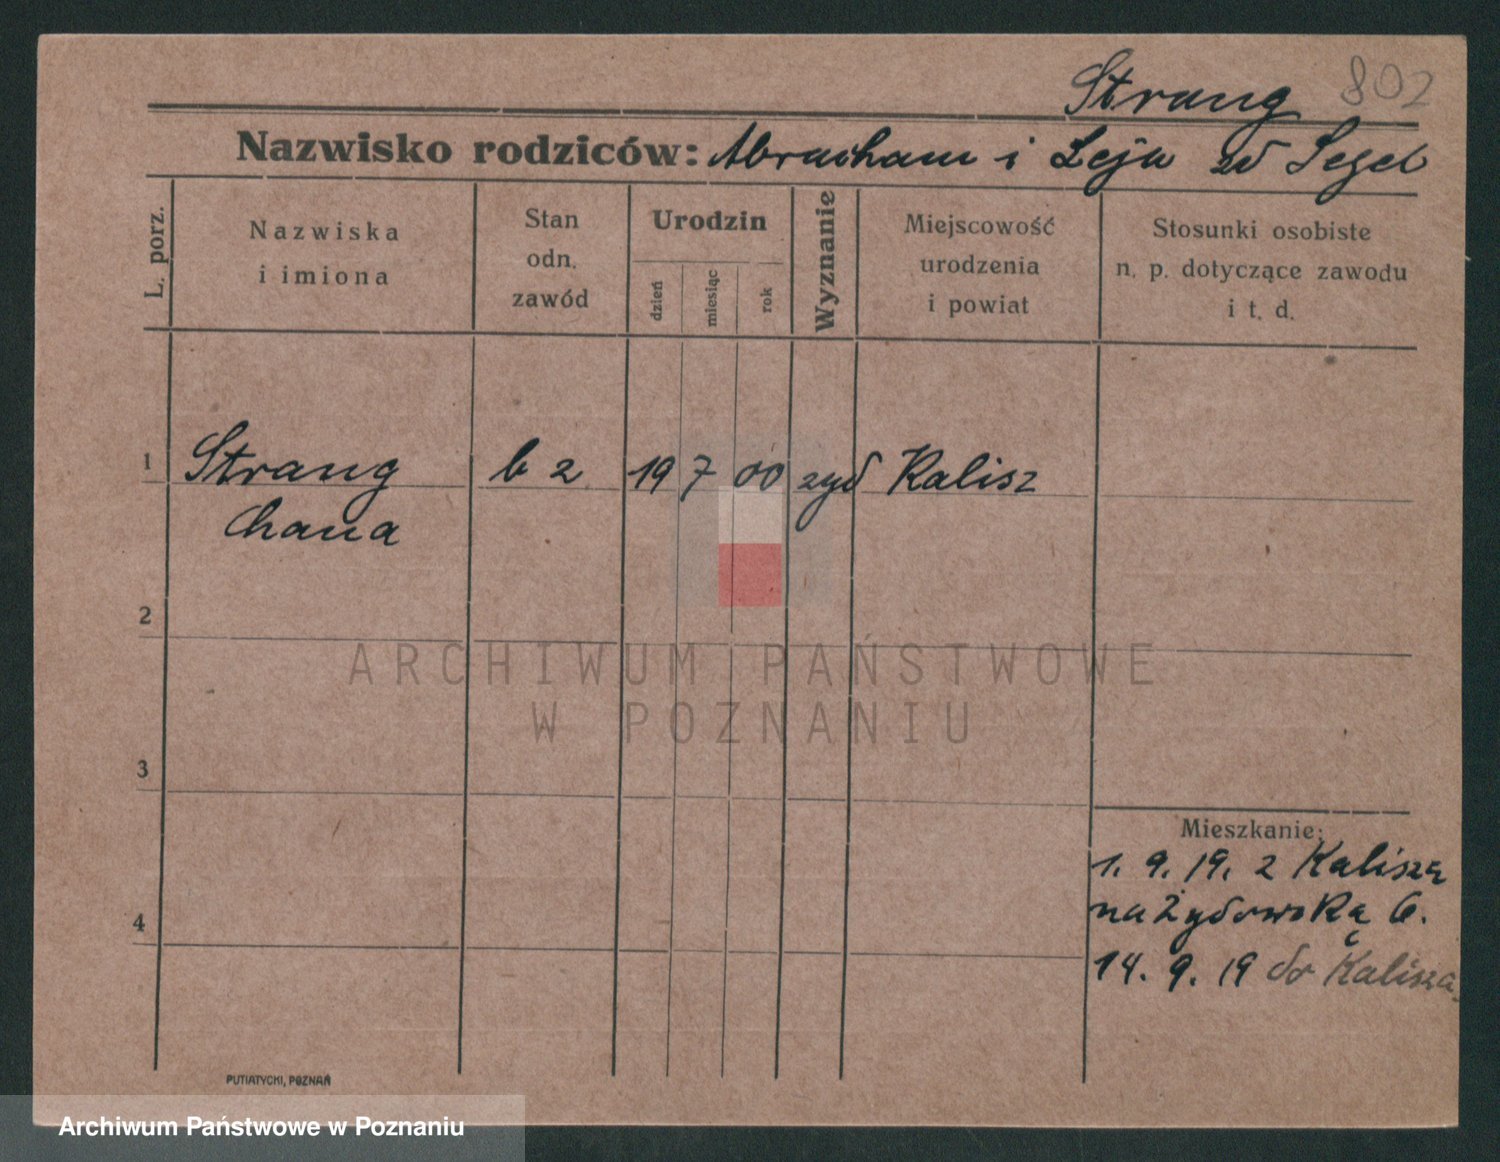 Strang 802
Nazwisko rodziców: Abracham i Leja zd Segel
L. porz.
Nazwiska
i imiona
Stan
odn.
zawód
Urodzin
dzień
miesiąc
rok
Wyznanie
Miejscowość
urodzenia
i powiat
Stosunki osobiste
n. p. dotyczące zawodu
i t. d.
1 Strang b z 19 7 00 żyd Kalisz
Chana
2
ARCHIWUM PAŃSTWOWE
W POZNANIU
3
Mieszkanie:
1. 9. 19. z Kalisza
na Żydowską 6.
4
14. 9. 19 do Kalisza
PUTIATYCKI, POZNAŃ
Archiwum Państwowe w Poznaniu